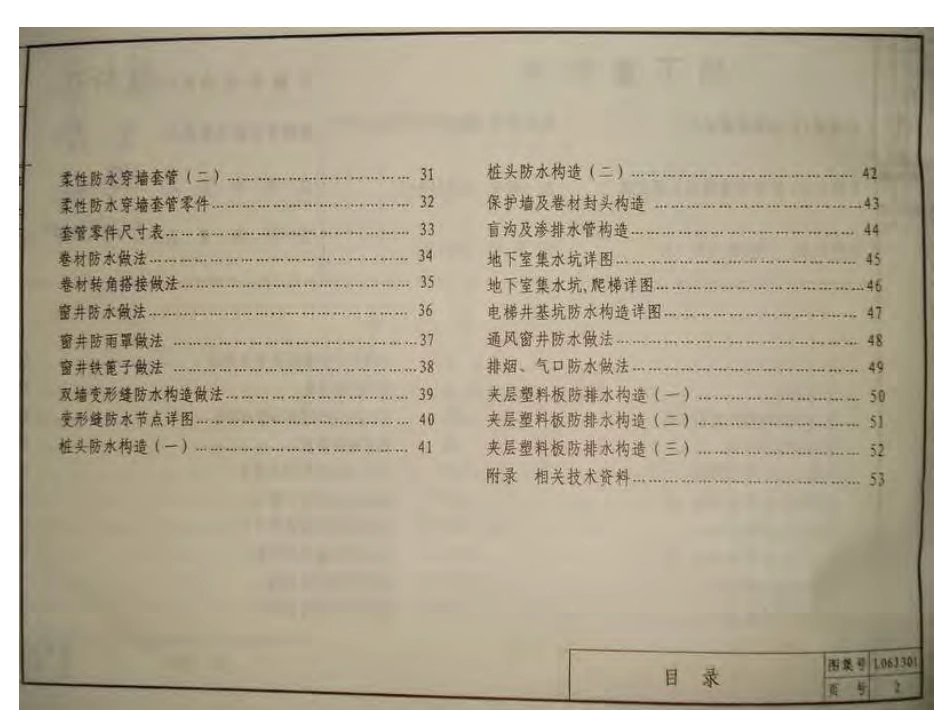 柔性防水穿墙套管（二）………………………… 31
柔性防水穿墙套管零件………………………… 32
套管零件尺寸表………………………… 33
卷材防水做法………………………… 34
卷材转角搭接做法………………………… 35
窗井防水做法………………………… 36
窗井防雨罩做法 ………………………… 37
窗井铁篦子做法 ………………………… 38
双墙变形缝防水构造做法………………………… 39
变形缝防水节点详图………………………… 40
桩头防水构造（一）………………………… 41
桩头防水构造（二）………………………… 42
保护墙及卷材封头构造 ………………………… 43
盲沟及渗排水管构造………………………… 44
地下室集水坑详图………………………… 45
地下室集水坑、爬梯详图………………………… 46
电梯井基坑防水构造详图………………………… 47
通风窗井防水做法………………………… 48
排烟、气口防水做法………………………… 49
夹层塑料板防排水构造（一）………………………… 50
夹层塑料板防排水构造（二）………………………… 51
夹层塑料板防排水构造（三）………………………… 52
附录 相关技术资料………………………… 53
目 录
图集号 L06J301
页 号 2